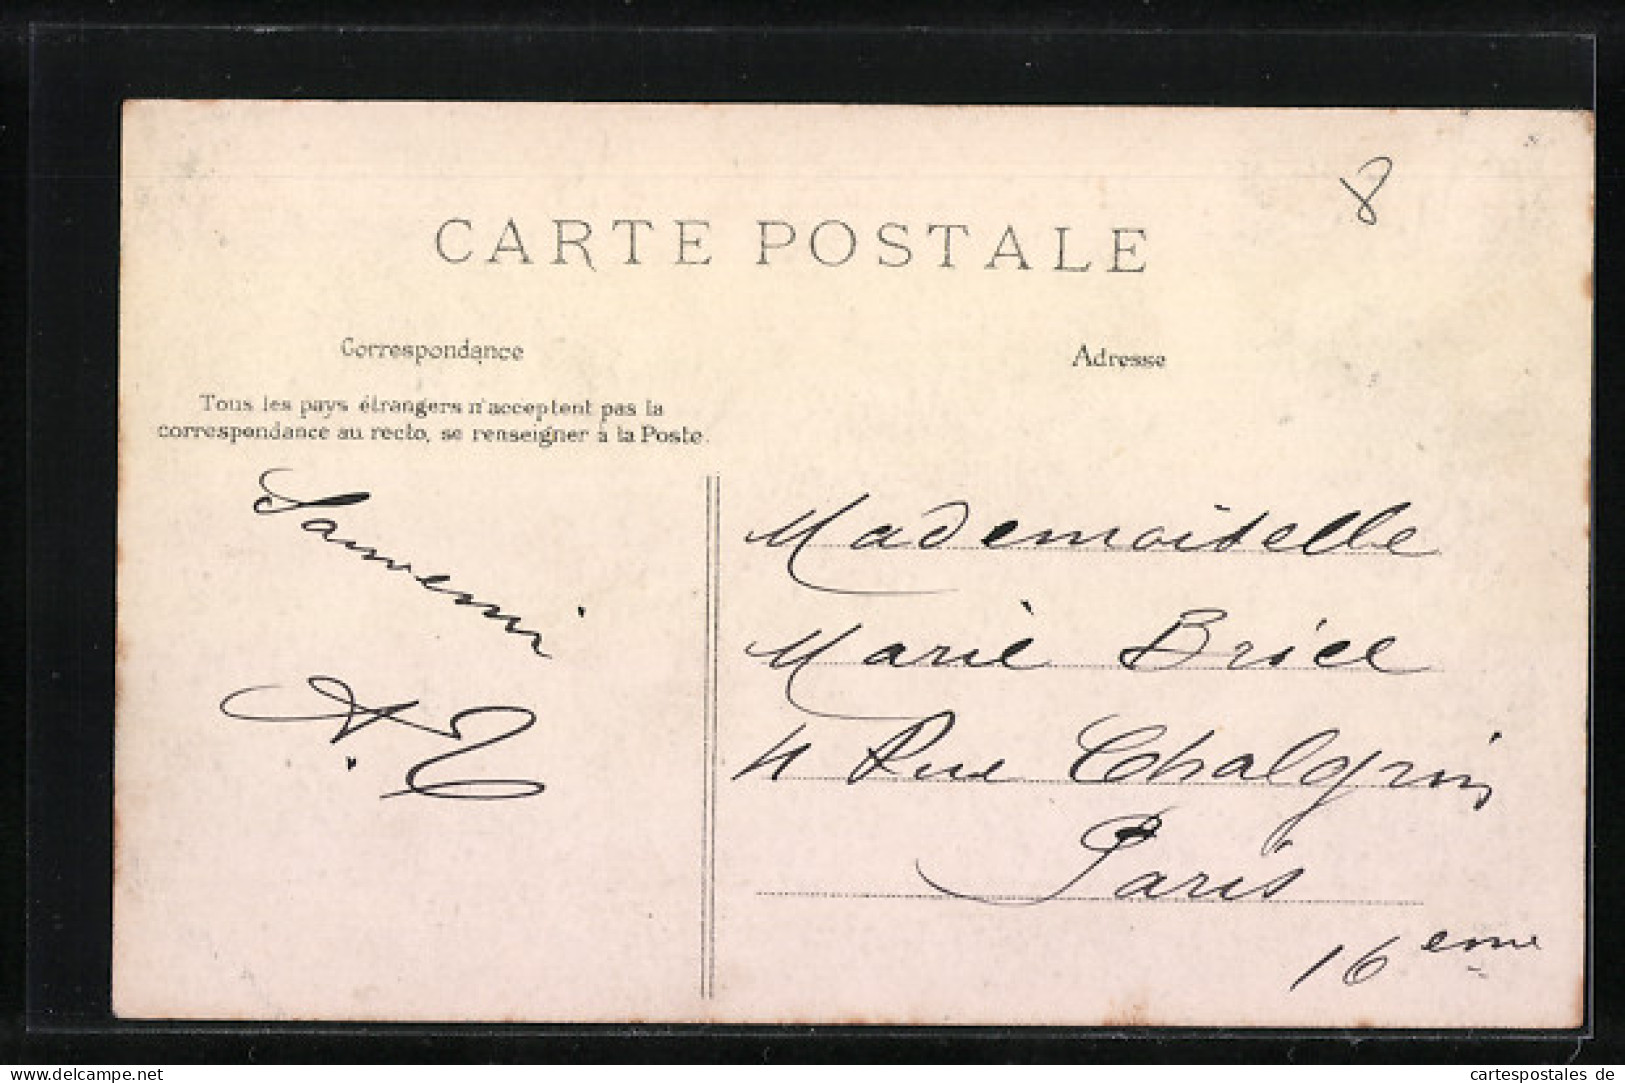 8
CARTE POSTALE
Correspondance
Tous les pays étrangers n'acceptent pas la
correspondance au recto, se renseigner à la Poste.
Adresse
Mademoiselle
Marie Brice
4 Rue Chalgrin
Paris
16 eme
www.cartespostales.de
cartespostales de